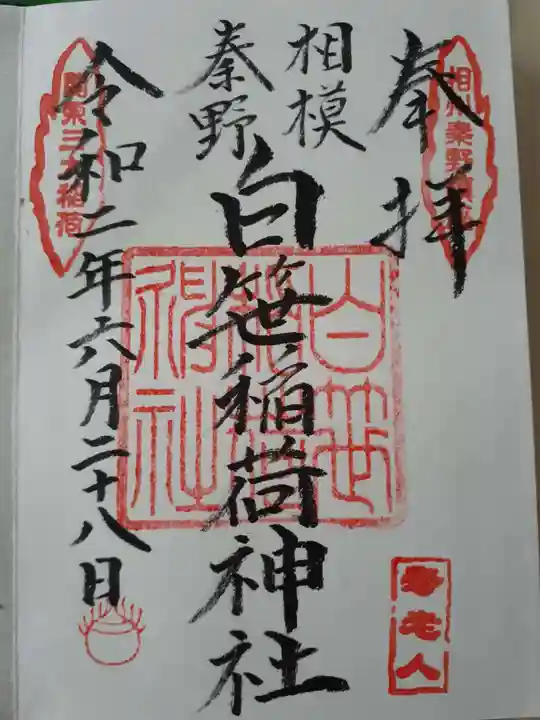 奉拝
相州秦野鎮座
相模
秦野
白笹稲荷神社
白笹
稲荷
神社
寿老人
令和二年六月二十八日
関東三大稲荷